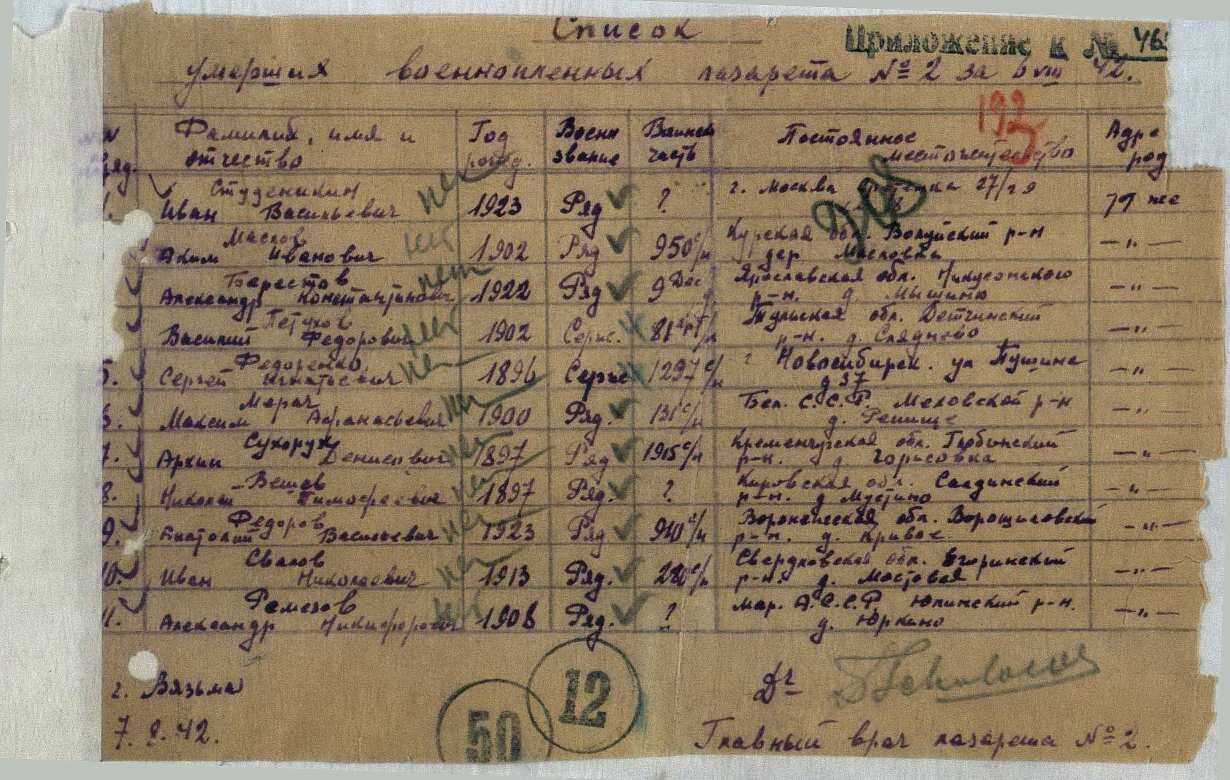 Список
Приложение к № 46
умерших военнопленных лазарета № 2 за 6 VIII 42.
192
Фамилия, имя и отчество
Год рожд.
Военн звание
Воинск часть
Постоянное местожительство
Адре род
Студеникин
Иван Васильевич нет 1923 Ряд ? г. Москва 27/29 тт же
Маслов
Аким Иванович нет 1902 Ряд 950 с/п Курская обл. Волуйский р-н дер. Масловка —„—
Берестов
Александр Константинович нет 1922 Ряд 9 Дес Ярославская обл. р-н. д. Мышино —„—
Петухов
Василий Федорович нет 1902 Серж. 81 Тульская обл. Детчинский р-н. д. —„—
Федоренко
5. Сергей Игнатьевич нет 1896 Серж 1297 с/п г. Новосибирск. ул Пушина д 37 —„—
6. Максим Афанасьевич 1900 Ряд. 131 с/п Бел. С.С.Р. р-н д. —„—
Сухорук
7. Архип Денисович нет 1897 Ряд 1915 с/п Кременчугская обл. р-н. д Горисовка —„—
8. Николай Тимофеевич нет 1897 Ряд. ? Кировская обл. р-н. д Мустино —„—
Федоров
9. Анатолий Васильевич нет 1923 Ряд 940 с/п Воронежская обл. Ворошиловский р-н. д. —„—
Свалов
10. Иван Николаевич нет 1913 Ряд. 280 с/п Свердловская обл. Егоринский р-н. д. Мостовая —„—
Ремезов
11. Александр Никифорович нет 1908 Ряд. ? Мар. А.С.С.Р. р-н. д. Юркино —„—
г. Вязьма
7. 8. 42.
50
12
Dr
Главный врач лазарета № 2.